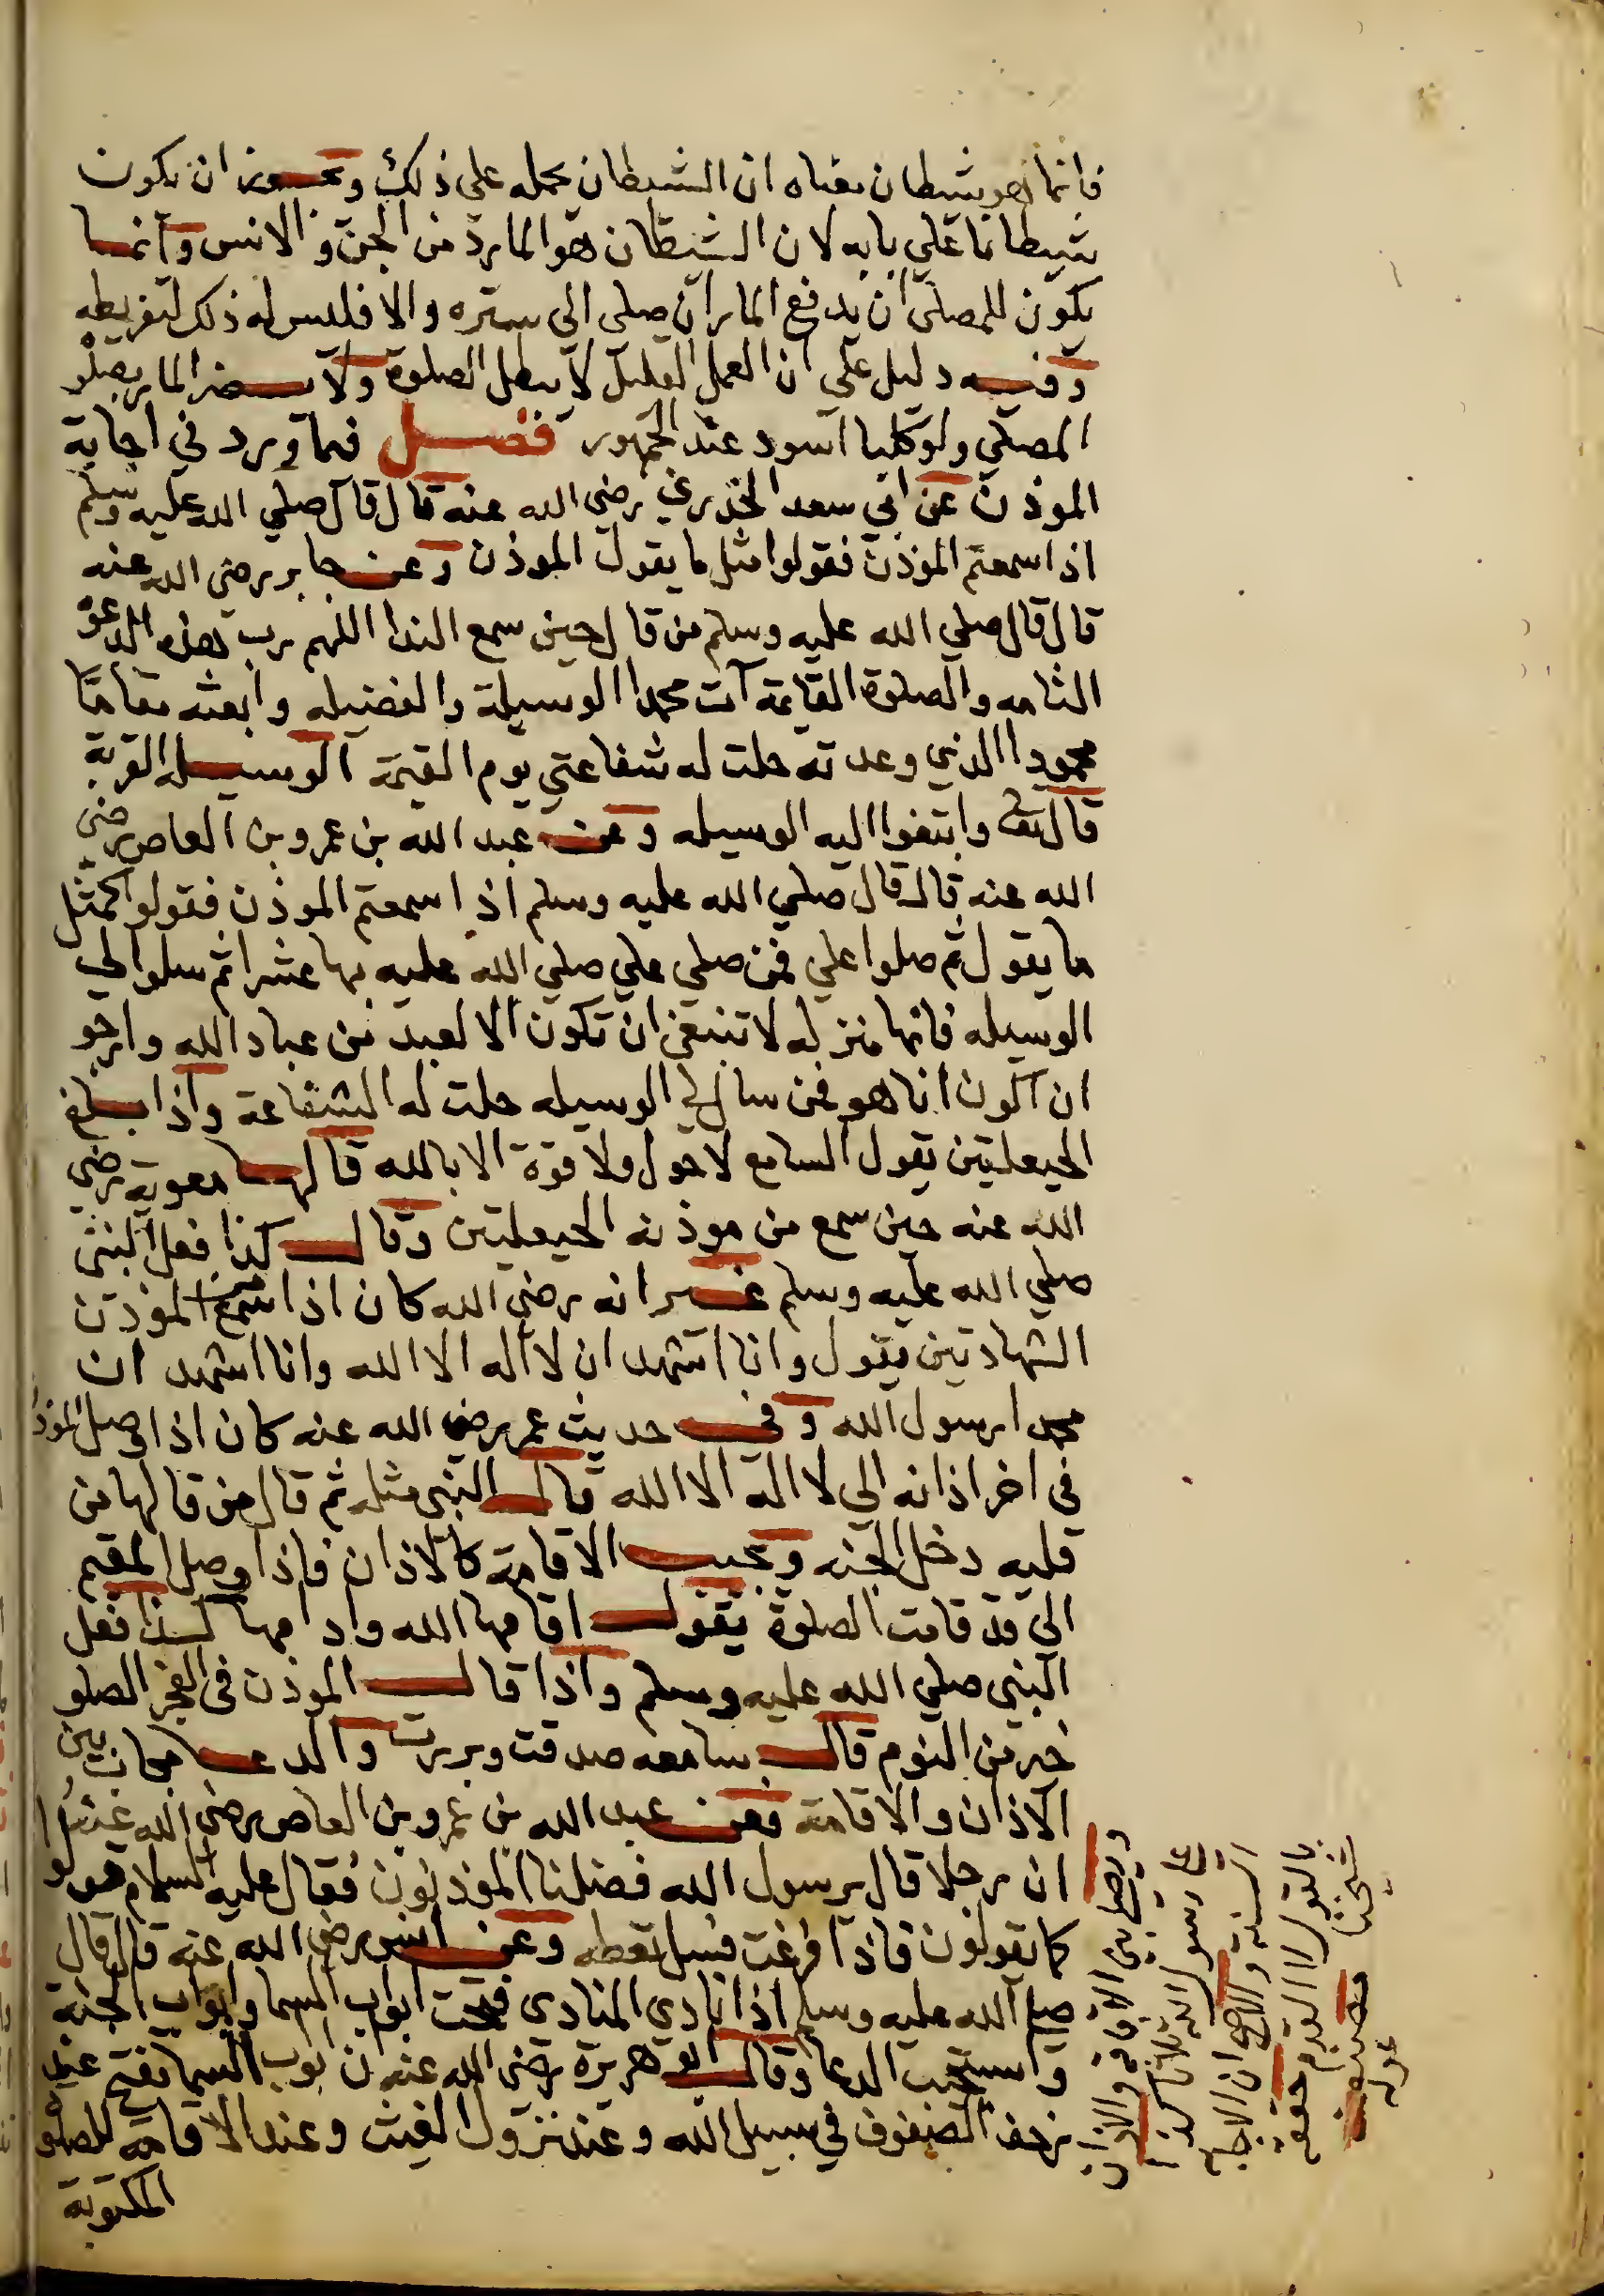 فانما هو شيطان معناه ان الشيطان يحمله علي ذلك ويجوز ان يكون
شيطانا علي بابه لان الشيطان هو المارد من الجن والانس وانما
يكون للمصلي ان يدفع المار ان صلي الي ستره والا فليس له ذلك لتفريطه
وفيه دليل علي ان العمل القليل لا يبطل الصلوة ولا يضر المار بصلو
المصلي ولو كلبا اسود عند الجمهور فصل فيما ورد في اجابة
الموذن عن ابي سعد الخدري رضي الله عنه قال قال صلي الله عليه وسلم
اذا سمعتم الموذن فقولوا مثل ما يقول الموذن وعن جابر رضي الله عنه
قال قال صلي الله عليه وسلم من قال حين سمع الندا اللهم رب هذه الدعو
التامه والصلوة القايمة آت محمدا الوسيلة والفضيله وابعثه مقاما
محمودا الذي وعدته حلت له شفاعتي يوم القيمة الوسيله القربة
قال تعالى وابتغوا اليه الوسيله وعن عبد الله بن عمرو بن العاص رضي
الله عنه قال قال صلي الله عليه وسلم اذا سمعتم الموذن فقولوا كمثل
ما يقول ثم صلوا علي فمن صلي علي صلي الله عليه بها عشرا ثم سلوا لي
الوسيله فانها منزله لا تنبغي ان تكون الا لعبد من عباد الله وارجو
ان اكون انا هو فمن سال لي الوسيله حلت له الشفاعة واذا بلغ
الحيعلتين يقول السامع لا حول ولا قوة الا بالله قالها معوية رضي
الله عنه حين سمع من موذنه الحيعلتين وقال كذا فعل النبي
صلي الله عليه وسلم غير انه رضي الله كان اذا سمع الموذن
الشهادتين يقول وانا اشهد ان لا اله الا الله وانا اشهد ان
محمدا رسول الله وفي حديث عمر رضي الله عنه كان اذا وصل الموذن
في اخر اذانه الي لا اله الا الله قال النبي مثله ثم قال من قالها من
قلبه دخل الجنه ويجيب الاقامة كالاذان فاذا وصل المقيم
الي قد قامت الصلوة يقول اقامها الله وادامها كذا فعل
النبي صلي الله عليه وسلم واذا قال الموذن في الفجر الصلو
خير من النوم قال سامعه صدقت وبررت والدعا مجاب بين
الاذان والاقامة فعن عبد الله بن عمرو بن العاص رضي الله عنهما
ان رجلا قال يرسول الله فضلنا الموذنون فقال عليه السلام قولو
كما يقولون فاذا فرغت فسل تعطه وعن انس رضي الله عنه قال قال
صلي الله عليه وسلم اذا نادي المنادي فتحت ابواب السما وابواب الجنة
واستجيب الدعا وقال ابو هريرة رضي الله عنه ن ابوب السما تفتح عند
زحف الصفوف في سبيل الله وعند نزول الغيث وعند الاقامة للصلو
المكتوبة
بين الاقامة والاذان
رسول الله كذا
السنة والاصح ان
شيخنا